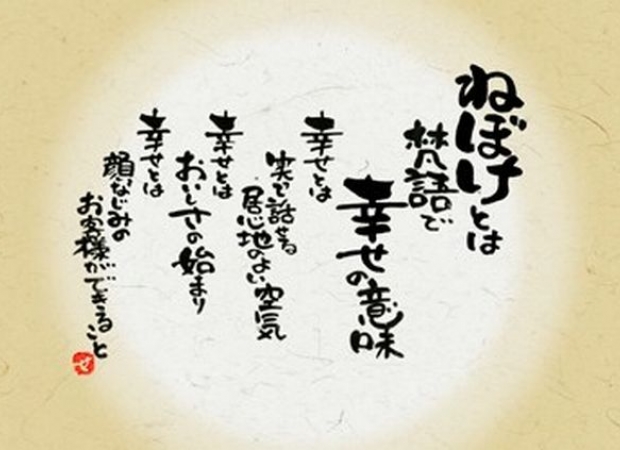 ねぼけとは
梵語で
幸せの意味
幸せとは
笑で話せる
居心地のよい空気
幸せとは
おいしさの始まり
幸せとは
顔なじみの
お客様ができること
せ